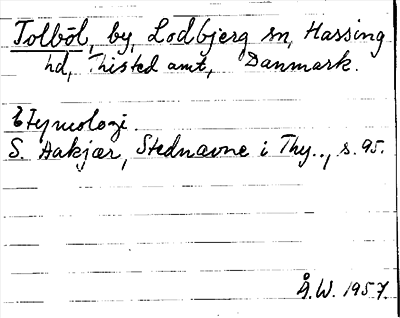 Tolböl, by, Lodbjerg sn, Hassing
hd, Thisted amt, Danmark.
Etymologi.
S. Aakjær, Stednavne i Thy.., s. 95.
Å.W. 1957.